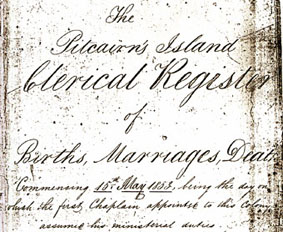 The
Pitcairn's Island
Clerical Register
of
Births, Marriages, Deat
Commencing 15th May 1853, being the day on
which the first Chaplain appointed to this Colony
assumed his ministerial duties